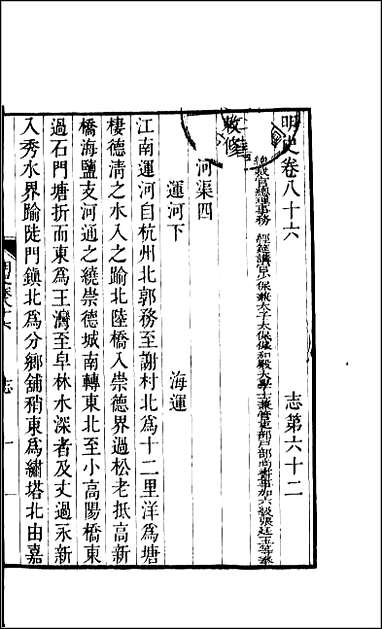 明史卷八十六 志第六十二
總裁官總理事務 經筵講官少保兼太子太保保和殿大學士兼管吏部戶部尚書事加六級張廷玉等奉
敕修
河渠四
運河下 海運
江南運河自杭州北郭務至謝村北爲十二里洋爲塘
棲德清之水入之踰北陸橋入崇德界過松老抵高新
橋海鹽支河通之繞崇德城南轉東北至小高陽橋東
過石門塘折而東爲王灣至阜林水深者及丈過永新
入秀水界踰陡門鎮北爲分鄉舖稍東爲繡塔北由嘉
志